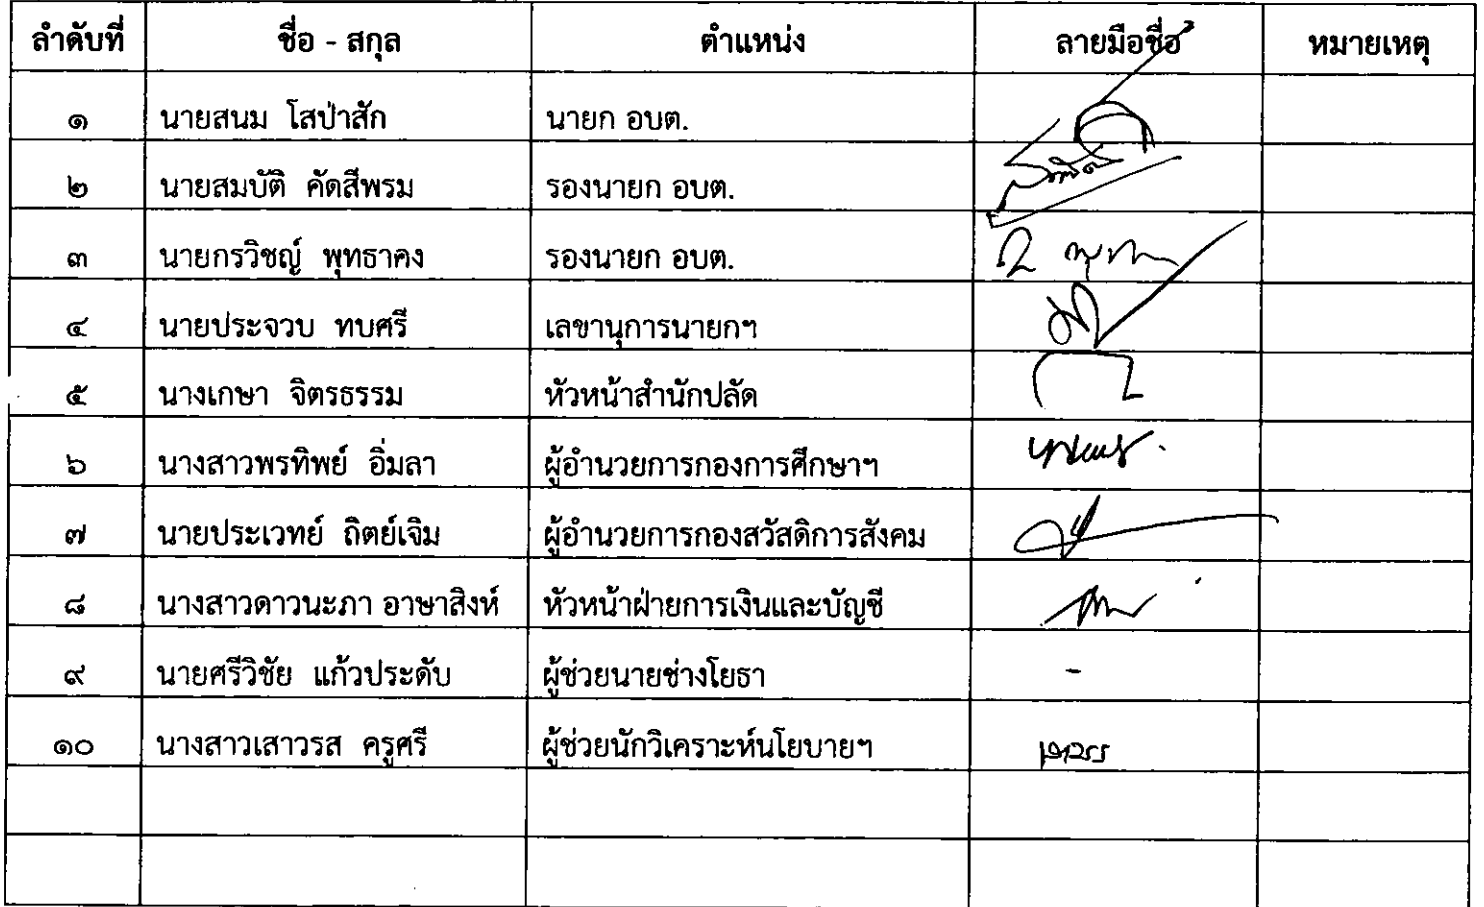 ลำดับที่ ชื่อ - สกุล ตำแหน่ง ลายมือชื่อ หมายเหตุ
๑ นายสนม โสป่าสัก นายก อบต.
๒ นายสมบัติ คัดสีพรม รองนายก อบต.
๓ นายกรวิชญ์ พุทธาคง รองนายก อบต.
๔ นายประจวบ ทบศรี เลขานุการนายกฯ
๕ นางเกษา จิตรธรรม หัวหน้าสำนักปลัด
๖ นางสาวพรทิพย์ อิ่มลา ผู้อำนวยการกองการศึกษาฯ
๗ นายประเวทย์ ถิตย์เจิม ผู้อำนวยการกองสวัสดิการสังคม
๘ นางสาวดาวนะภา อาษาสิงห์ หัวหน้าฝ่ายการเงินและบัญชี
๙ นายศรีวิชัย แก้วประดับ ผู้ช่วยนายช่างโยธา -
๑๐ นางสาวเสาวรส ครูศรี ผู้ช่วยนักวิเคราะห์นโยบายฯ